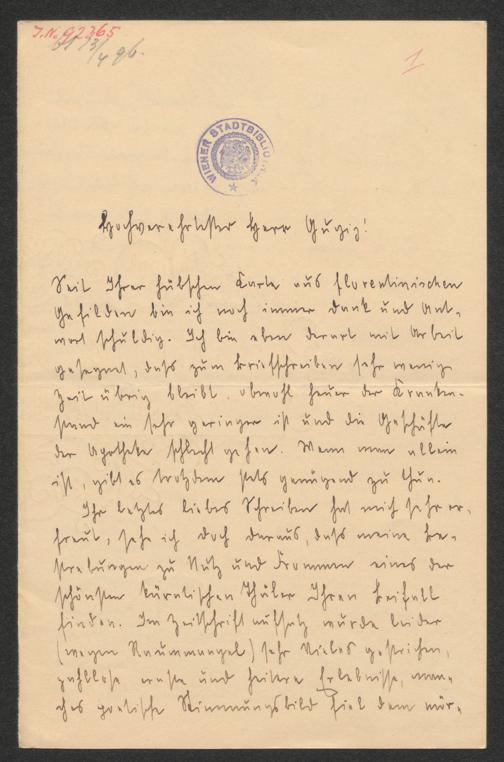 J.N. 92365
1
WIENER STADTBIBLIOTHEK
Hochverehrtester Herr Gugiz!
Seit Ihrer hübschen Karte aus florentinischen
Gefilden bin ich noch immer Dank und Ant-
wort schuldig. Ich bin eben derart mit Arbeit
gesegnet, dass zum Briefschreiben sehr wenig
Zeit übrig bleibt, obwohl heuer der Kranken-
stand ein sehr geringer ist und die Geschäfte
der Apotheke schlecht gehen. Wenn man allein
ist, gibt es trotzdem stets genügend zu thun.
Ihr letztes liebes Schreiben hat mich sehr er-
freut, sehe ich doch daraus, dass meine Be-
strebungen zu Nutz und Frommen eines der
schönsten Tirolischen Thäler Ihren Beifall
finden. Im Zeitschriftaufsatz wurde leider
(wegen Raummangel) sehr Vieles gestrichen,
zahllose ernste und heitere Erlebnisse, man-
ches poetische Stimmungsbild fiel dem mör-